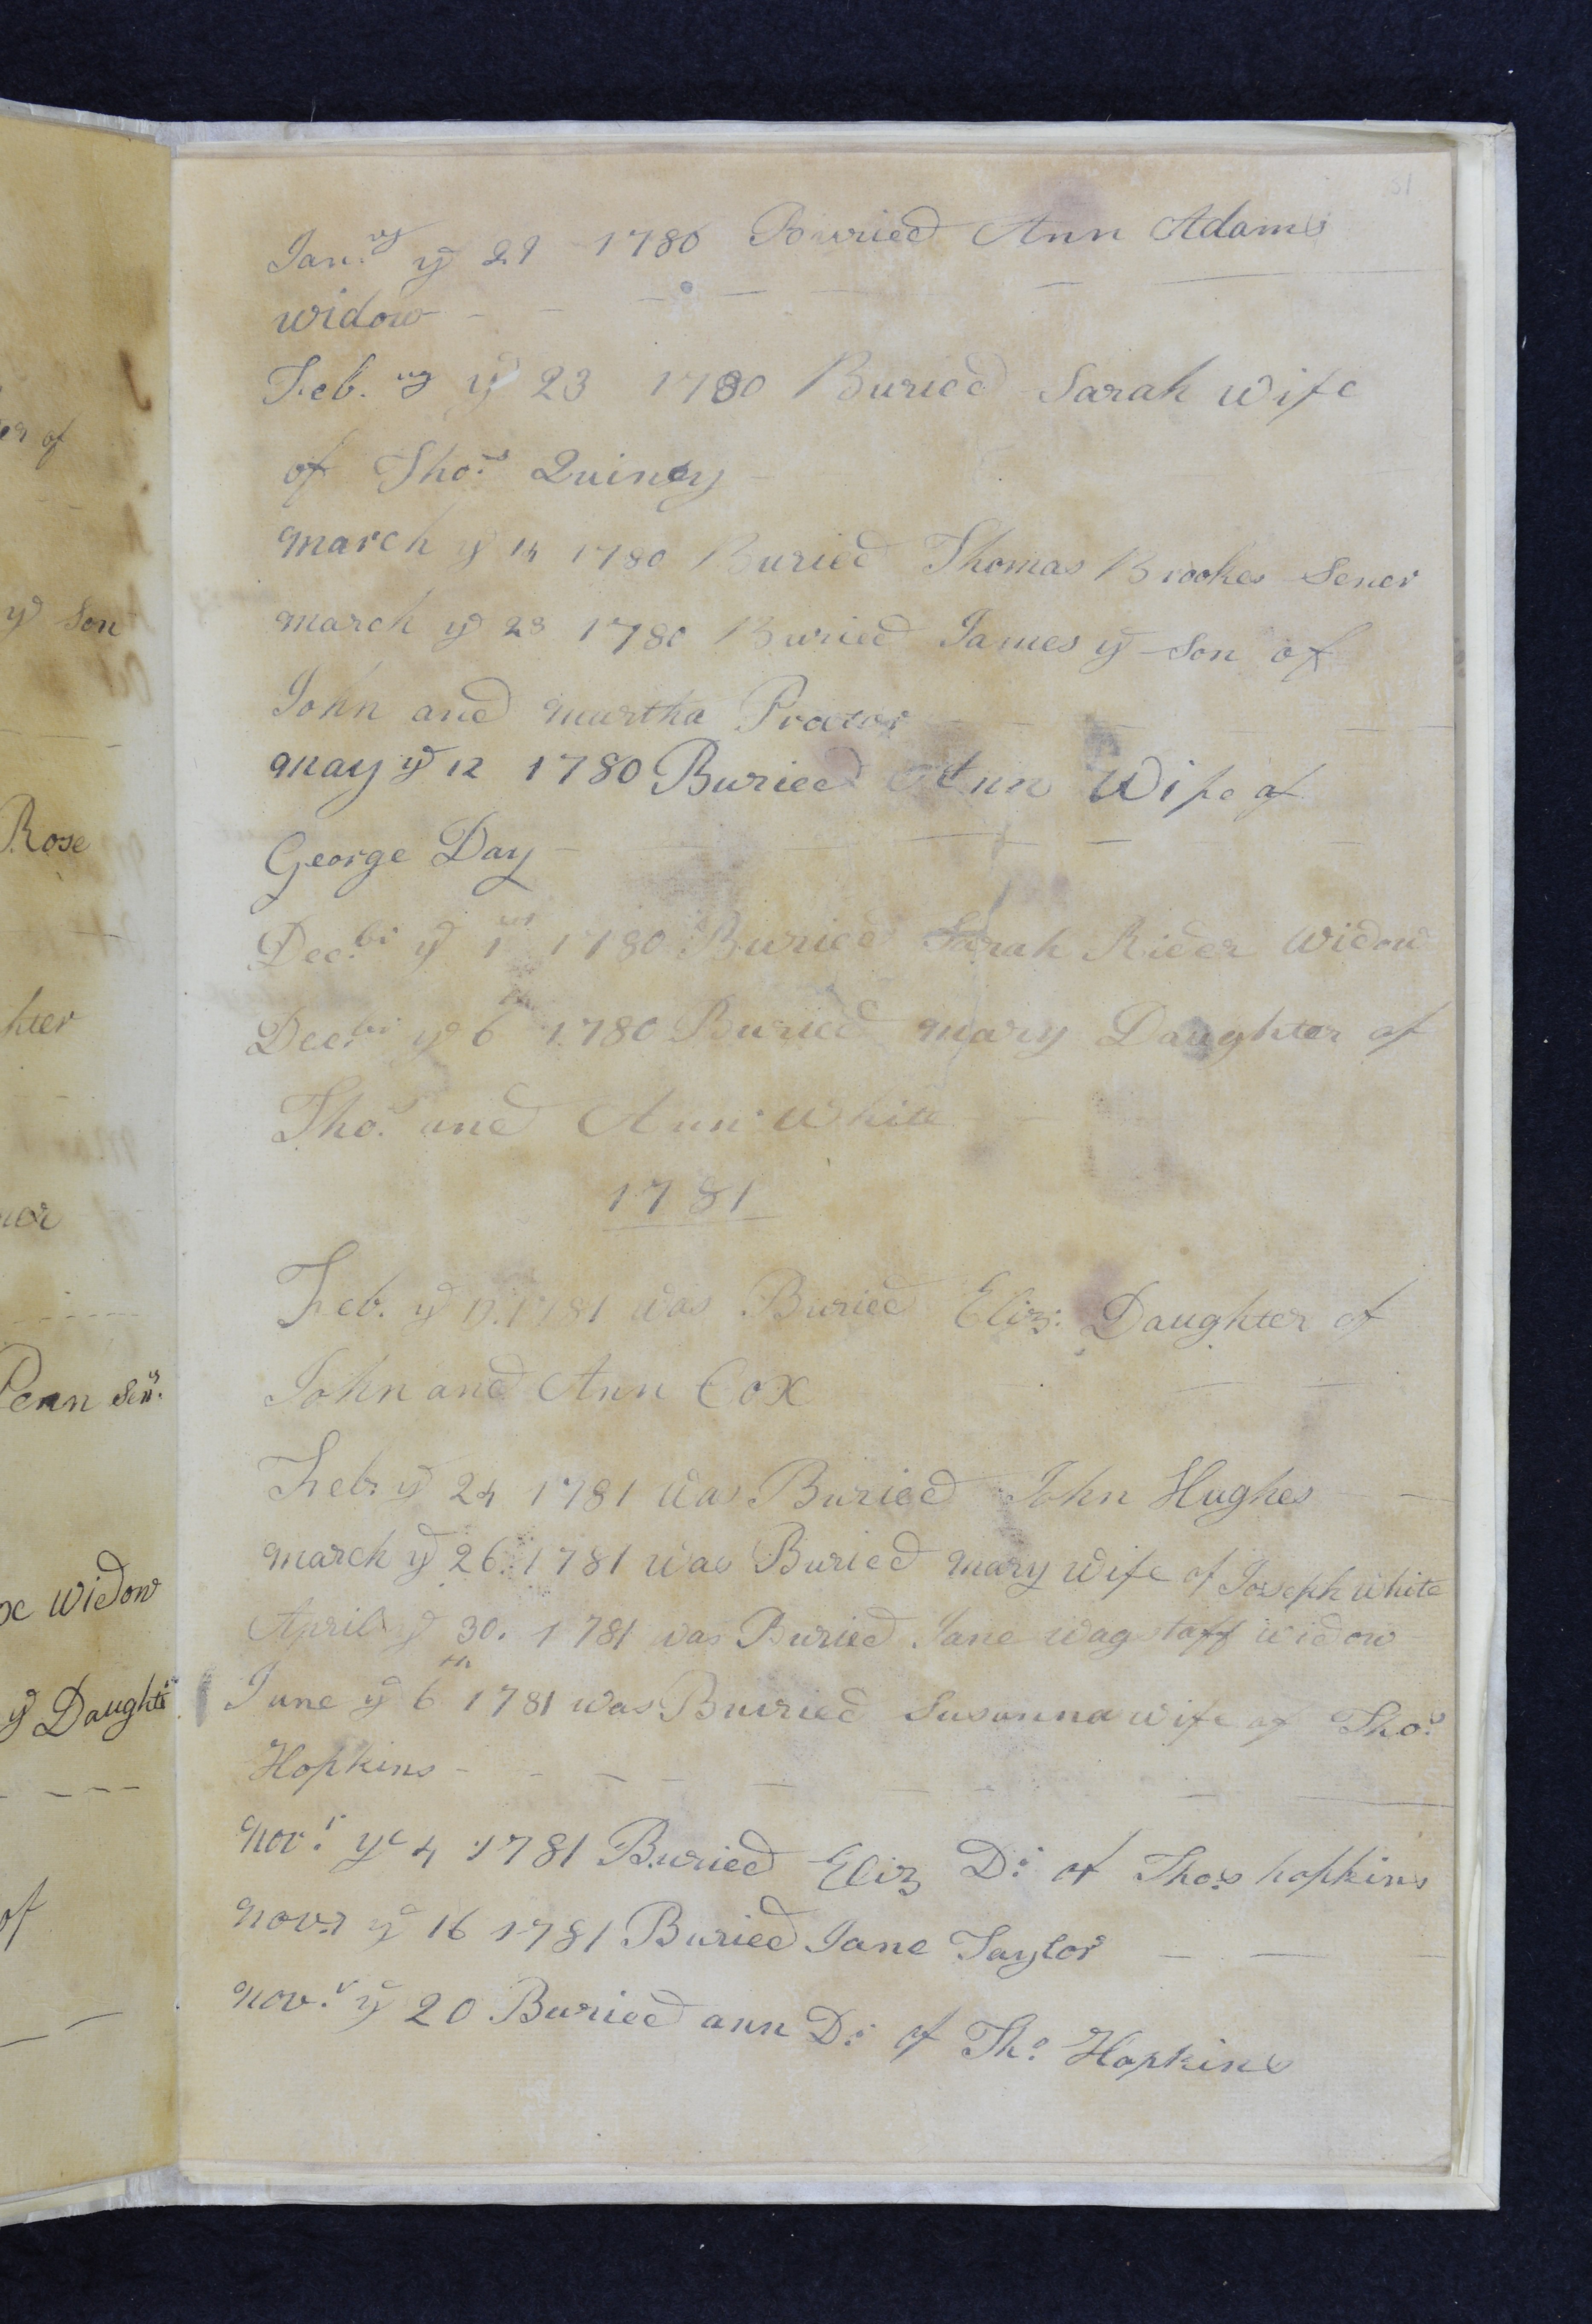 Jan.ry ye 29 1780 Buried Ann Adams
widow
Feb.ry ye 23 1780 Buried Sarah wife
of Tho.s Quiney
march ye 14 1780 Buried Thomas Brookes Sener
march ye 28 1780 Buried James ye Son of
John and martha Procter
may ye 12 1780 Buried Ann Wife of
George Day
Dec.br ye 1st 1780 Buried Sarah Rider Widow
Dec.br ye 6th 1780 Buried mary Daughter of
Tho.s and Ann White
1781
Feb. ye 1781 was Buried Eliz: Daughter of
John and Ann Cox
Feb: ye 24 1781 was Buried John Hughes
march ye 26. 1781 was Buried mary wife of Joseph white
April ye 30. 1781 was Buried Jane wagstaff widow
June ye 6th 1781 was Buried Susanna wife of Tho.s
Hopkins
Nov.r ye 4 1781 Buried Eliz D: of Tho:s hopkins
Nov.r ye 16 1781 Buried Jane Taylor
Nov.r ye 20 Buried ann D: of Th.o Hopkins
er of
ye Son
Rose
hter
ner
Penn Senr.
widow
ye Daughtr
of